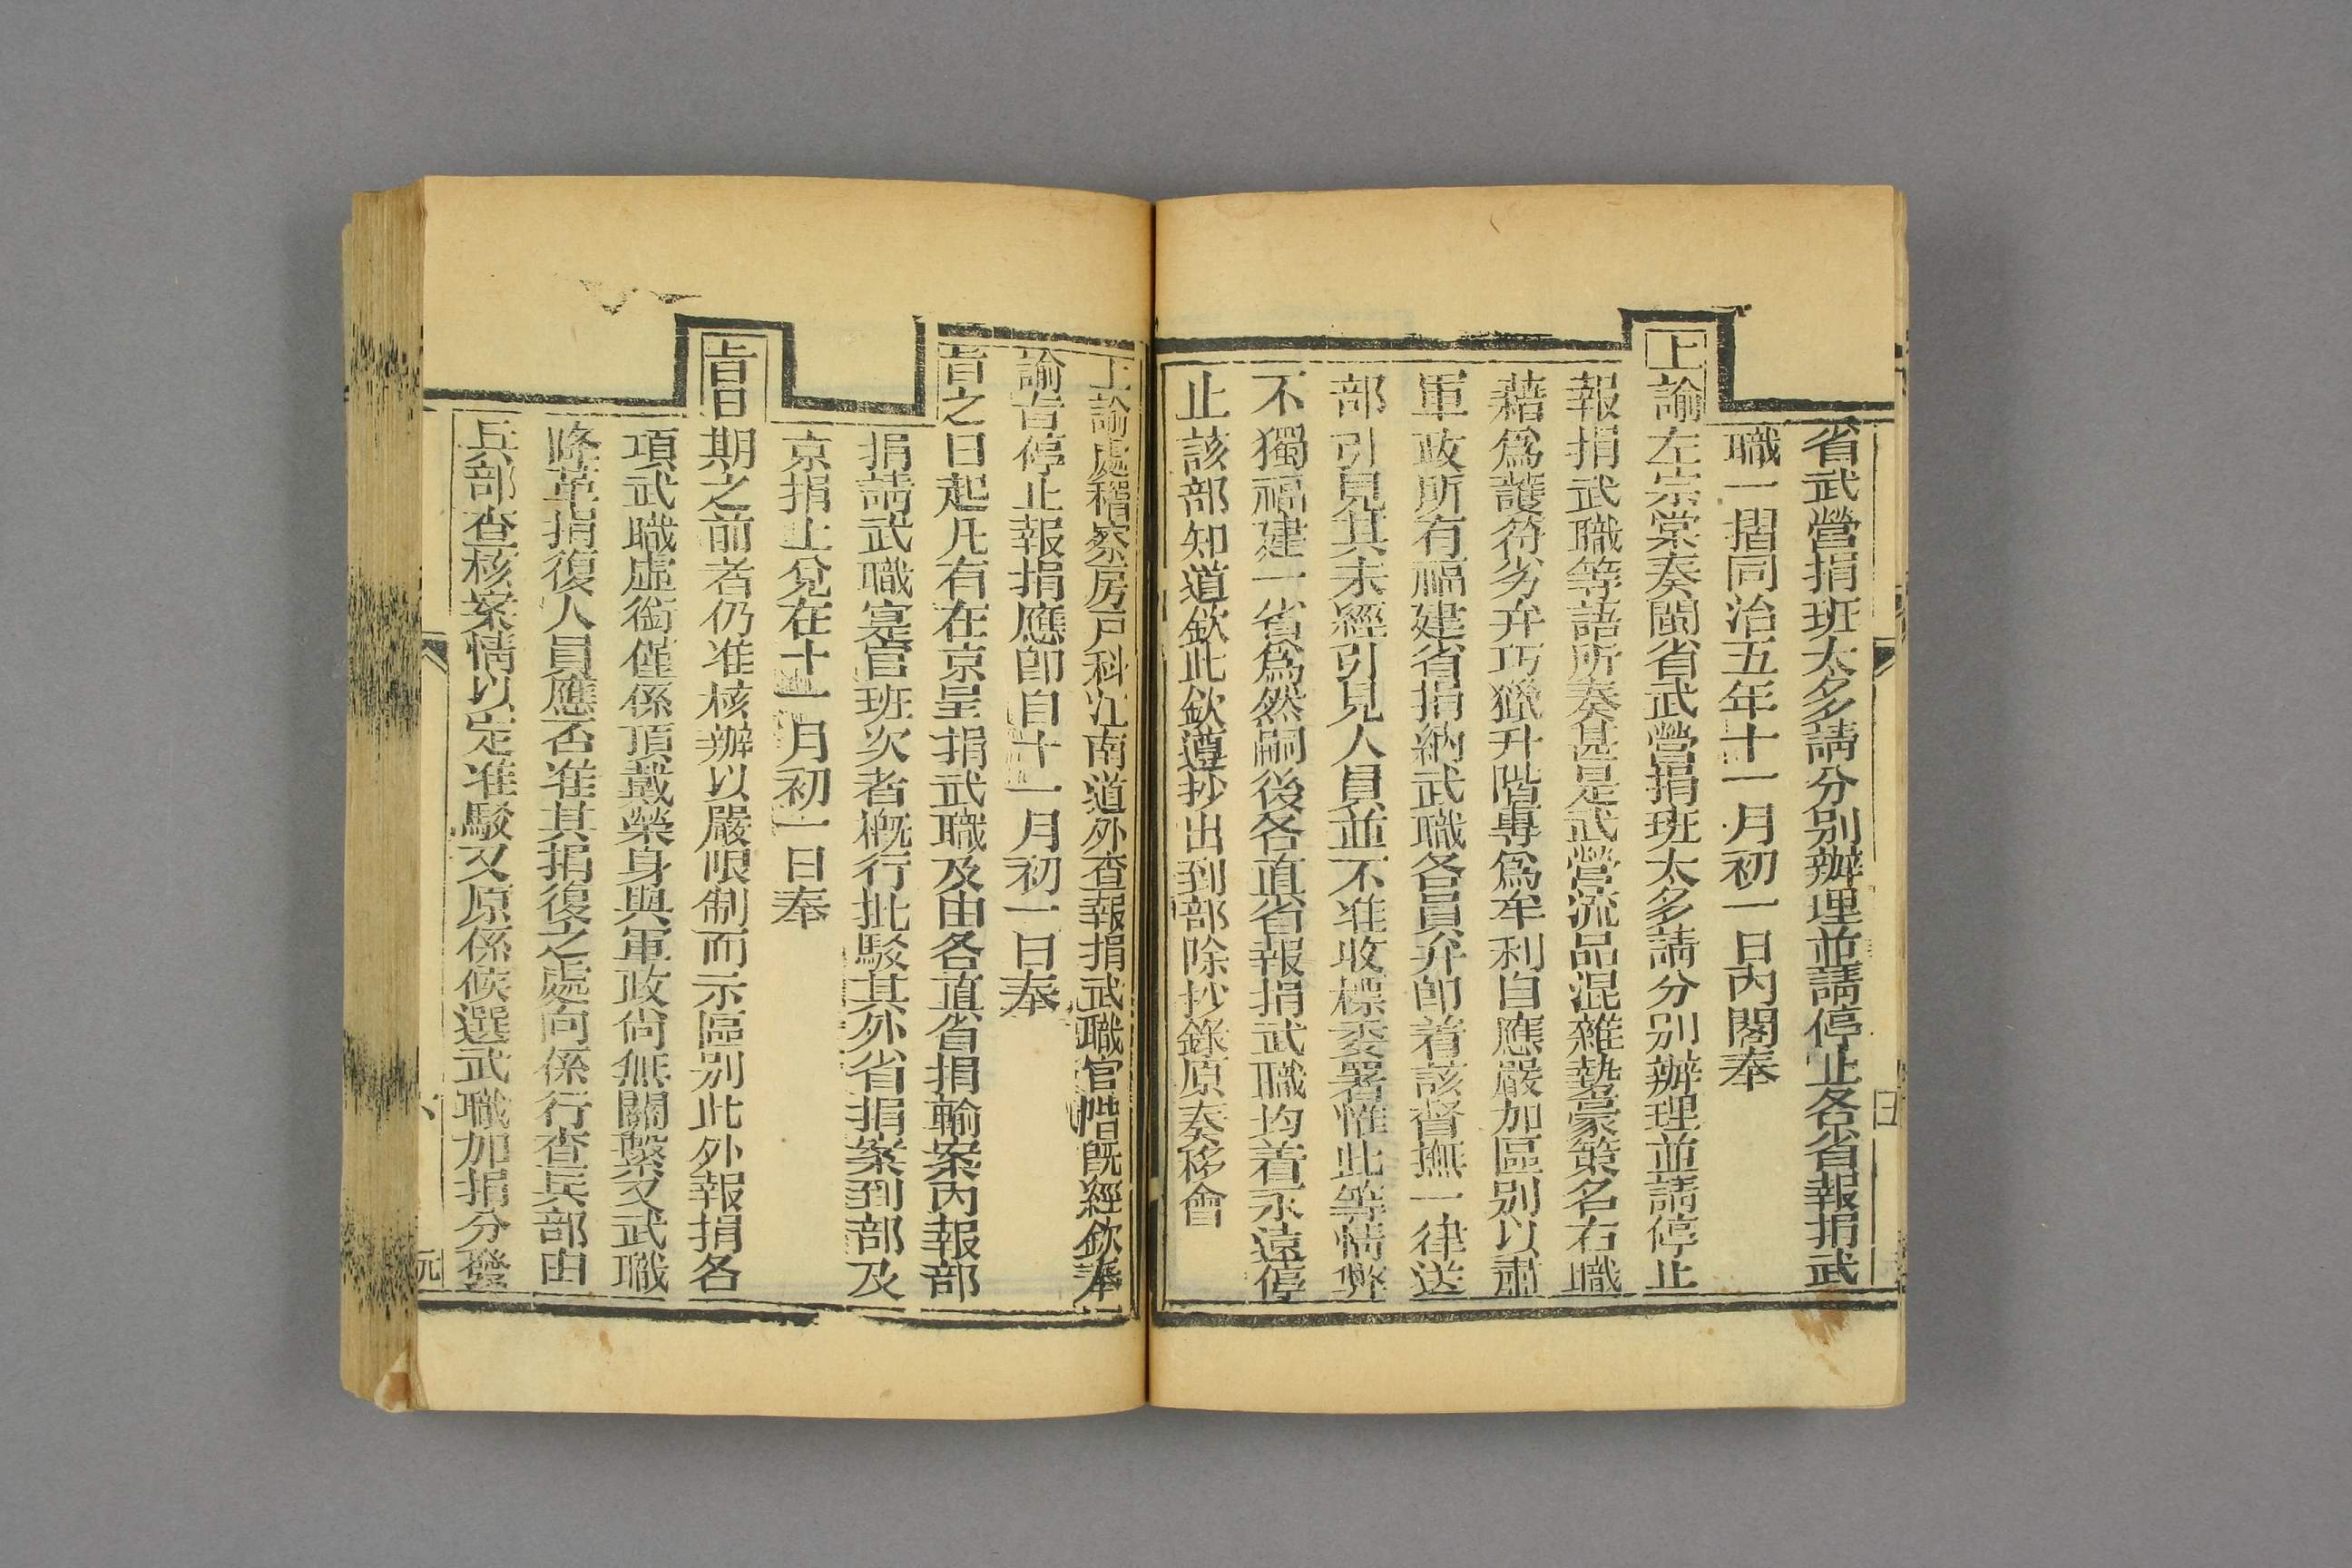 省武營捐班太多請分別辦理並請停止各省報捐武
職一摺同治五年十一月初一日內閣奉
上諭左宗棠奏閩省武營捐班太多請分別辦理並請停止
報捐武職等語所奏甚是武營流品混雜勢豪策名右職
藉爲護符劣弁巧獵升階專爲牟利自應嚴加區別以肅
軍政所有福建省捐納武職各員弁卽着該督撫一律送
部引見其未經引見人員並不准收標委署惟此等情弊
不獨福建一省爲然嗣後各直省報捐武職均着永遠停
止該部知道欽此欽遵抄出到部除抄錄原奏移會
上諭處稽察房戶科江南道外查報捐武職官階既經欽奉
諭旨停止報捐應卽自十一月初一日奉
旨之日起凡有在京呈捐武職及由各直省捐輸案內報部
捐請武職寔官班次者槪行批駁其外省捐案到部及
京捐上兌在十一月初一日奉
旨日期之前者仍准核辦以嚴限制而示區别此外報捐各
項武職虛銜僅係頂戴榮身與軍政尙無關繫又武職
降革捐復人員應否准其捐復之處向係行查兵部由
兵部查核案情以定准駁又原係候選武職加捐分發